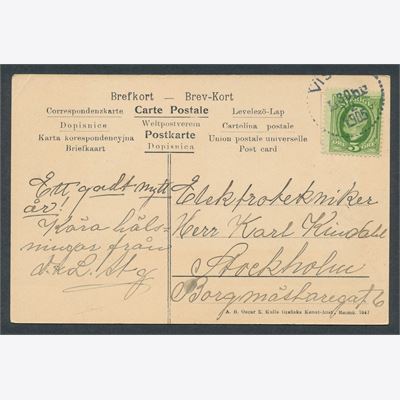 Brefkort — Brev-Kort
Correspondenzkarte Carte Postale Levelező-Lap
Dopisnice Weltpostverein Cartolina postale
Karta korespondencyjna Postkarte Union postale universelle
Briefkaart Dopisnica Post card
Ett godt nytt
år!
Kära häls-
ningar från
Elektrotekniker
Herr Karl Kindahl
Stockholm
Borgmästaregat. 6
5